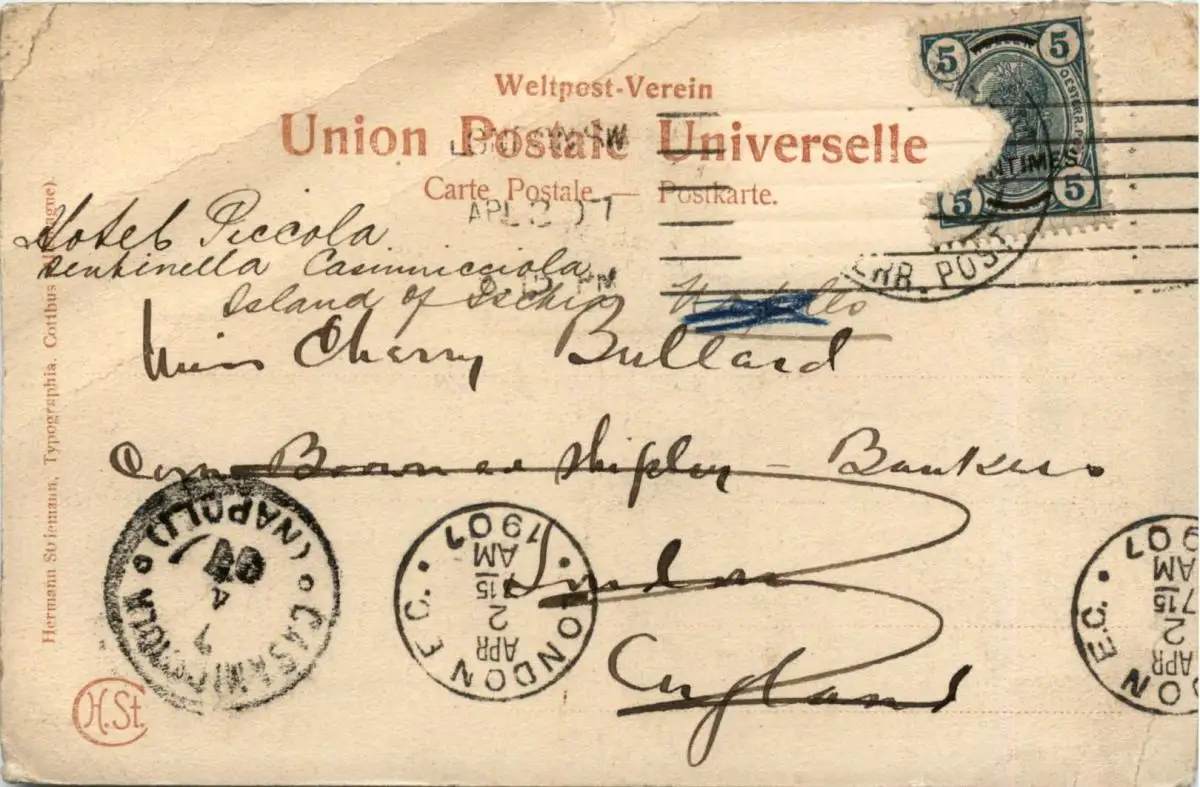 Weltpost-Verein
Union Postale Universelle
Carte Postale — Postkarte.
5 5
OESTERR. P
CENTIMES
5 5
ERR. POST
LONDON SW
APL 2 07
PM
Hotel Piccola
Sentinella Casamicciola
Island of Ischia
Miss Cherry Bullard
Brown Shipley – Bankers
London
England
CASAMICCIOLA
(NAPOLI)
4
LONDON E.C.
APR 2
7 15 AM
1907
ON E.C.
APR 2
7 15 AM
1907
Hermann Striemann, Typographia, Cottbus
H.St.